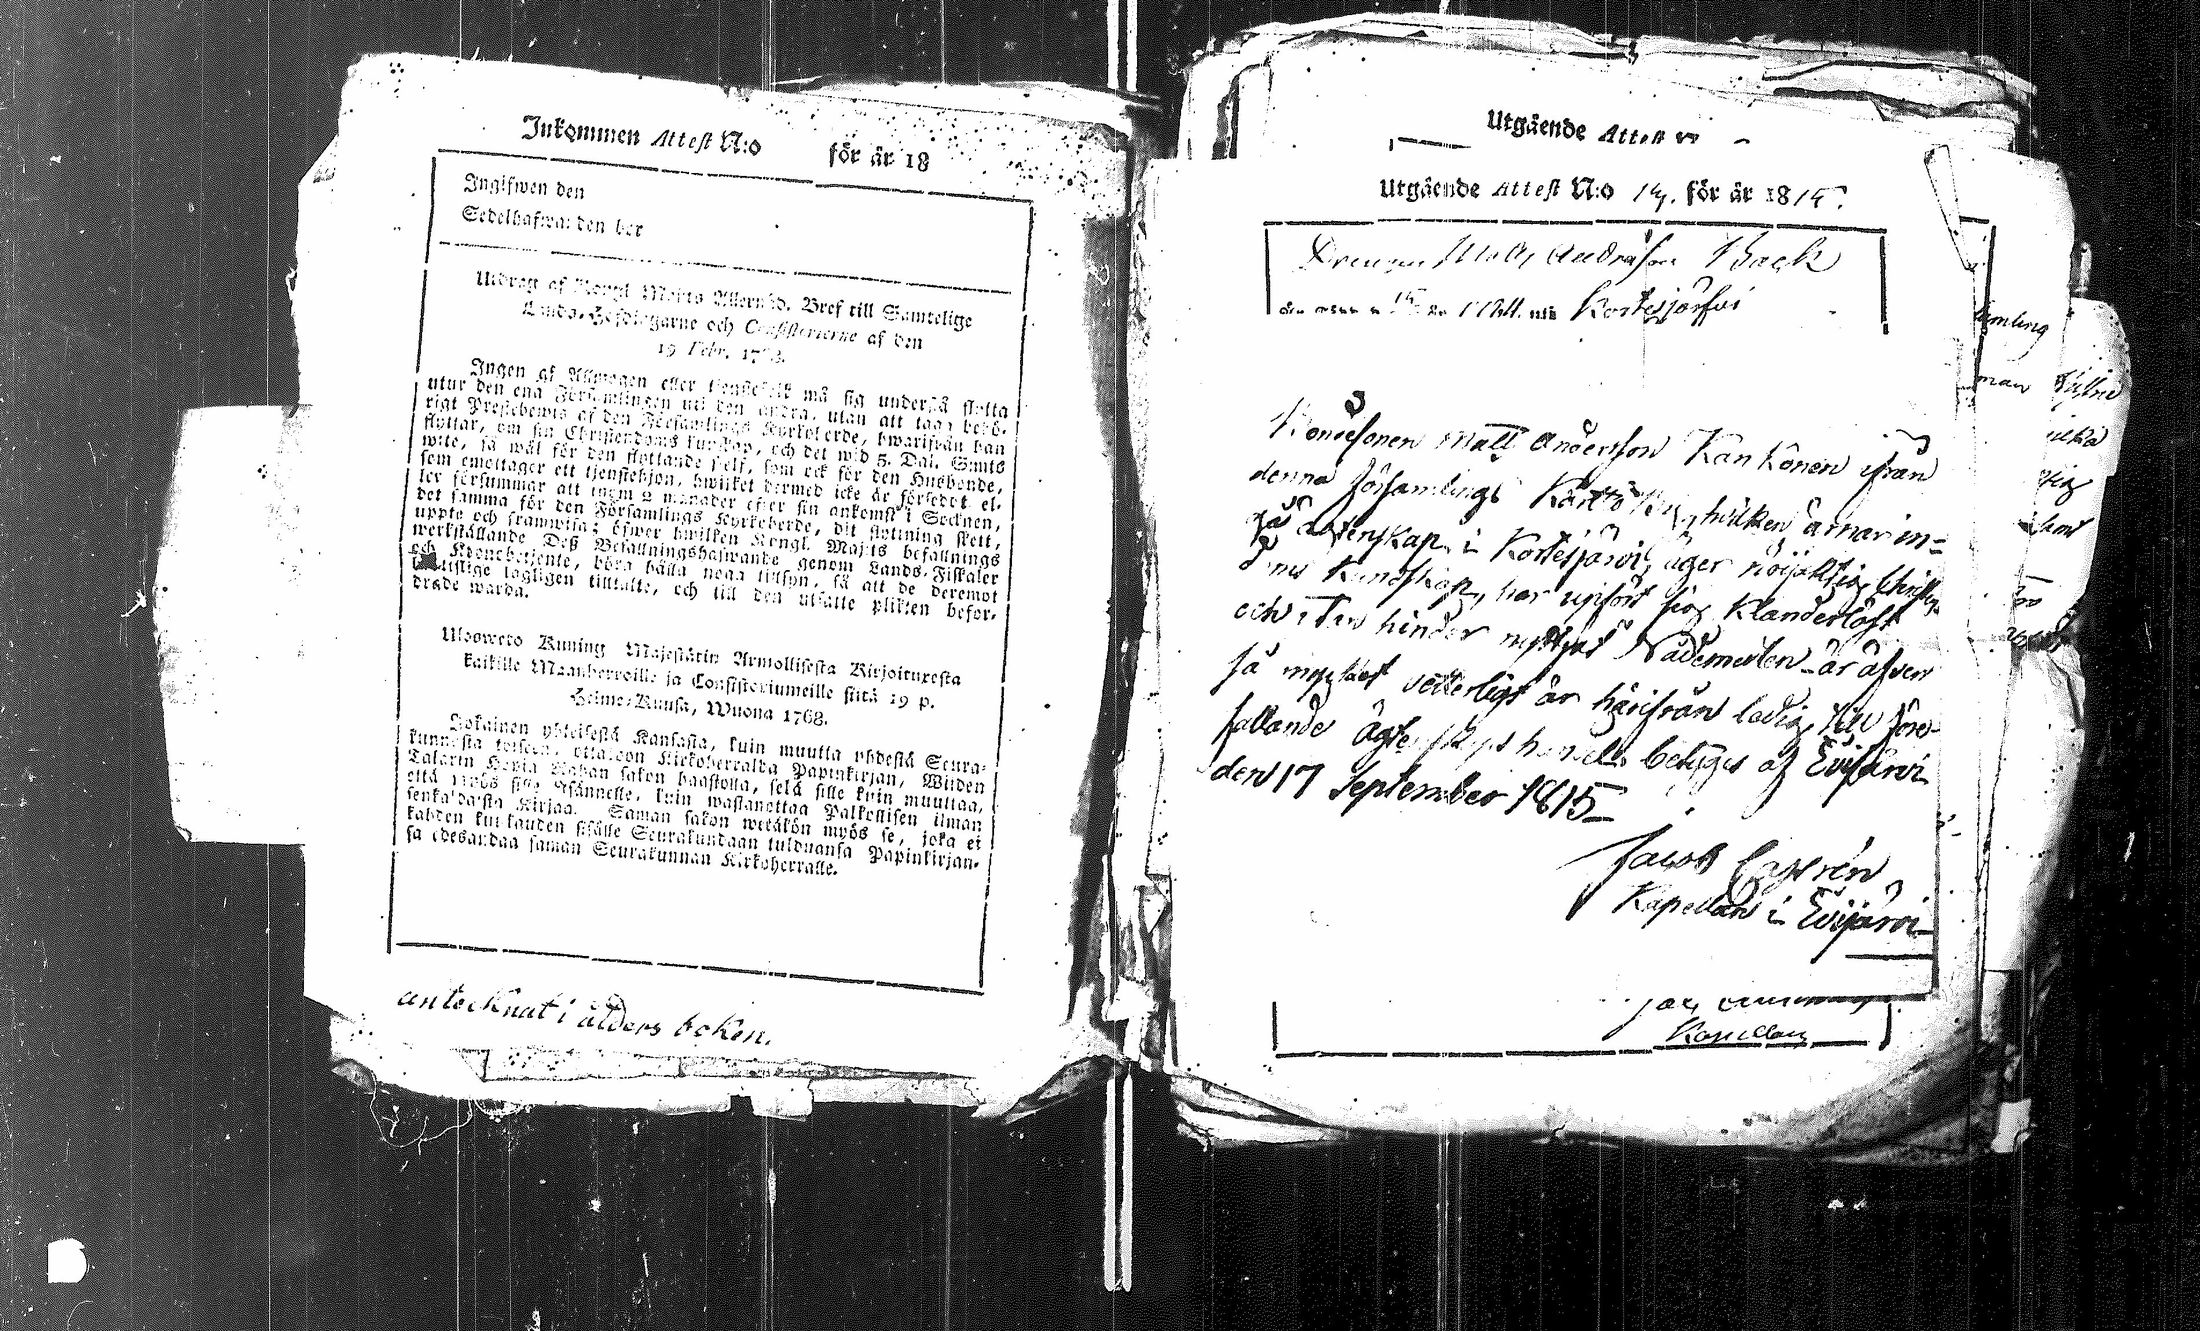 Inkommen Attest N:o för år 18
Ingifwen den
Sedelhafwarden ber
Utdrag af Kongl Majts Allernåd. Bref till Samtelige
Lands-Höfdingarne och Consistorierne af den
19 Febr.
Ingen af Allmogen eller tjenstefolk må sig understå flytta
utur den ena Församlingen uti den andra, utan att taga behö-
rigt Prestebewis af den Församlings Kyrkoherde, hwarifrån han
flyttar, om sin Christendoms kunskap, och det wid 5. Dal. Smts
wite, så wäl för den flyttande sielf, som ock för den Husbonde,
som emottager ett tjenstehjon, hwilket dermed icke är försedt el-
ler försummar att inom 2 månader efter sin ankomst i Socknen,
det samma för den Församlings Kyrkoherde, dit flyttning skett,
uppte och framwisa; öfwer hwilken Kongl. Majts befallnings
werkställande Dess Befallningshafwande genom Lands-Fiskaler
och Kronobetjente, böra hålla noga tillsyn, så att de deremot
brottslige lagligen tilltalte, och till den utsatte plikten befor-
drade warda.
Ulosweto Kuning Majestätin Armollisesta Kirjoituxesta
kaikille Maanherroille ja Consistoriumeille siitä 19 p.
Helme-Kuusa, Wuona 1768.
Jokainen yhteisestä Kansasta, kuin muutta yhdestä Seura-
kunnasta toiseen, ottakoon Kirkoherralda Papinkirjan, Wiiden
Talarin Hopia Rahan sakon haastolla, sekä sille kuin muuttaa,
että myös sille Isännelle, kuin wastanottaa Palkollisen ilman
senkaldaista Kirjaa. Saman sakon wetäkön myös se, joka ei
kahden kuukauden sisälle Seurakundaan tulduansa Papinkirjan-
sa edesandaa saman Seurakunnan Kirkoherralle.
antecknat i ålders boken.
Utgående Attest
Utgående Attest N:o 14. för år 1815.
Drengen Matts Andersson Back
Kortesjärfvi
Bondesonen Matt Andersson Kankönen ifrån
denna församlings hvilken ärnar in-
gå äctenskap i Kortesjärvi, äger nöijaktig Christen-
doms Kundskap, har upfört sig Klanderlöst
och utan hinder nyttjat Nådemedlen - är äfven
så mycket vetterligt är härifrån ledig till före-
fallande ägtenskaps handel betyges af Evijärvi
den 17 September 1815_
Jacob Castrén
Kapellan i Evijärvi_
Kapellan